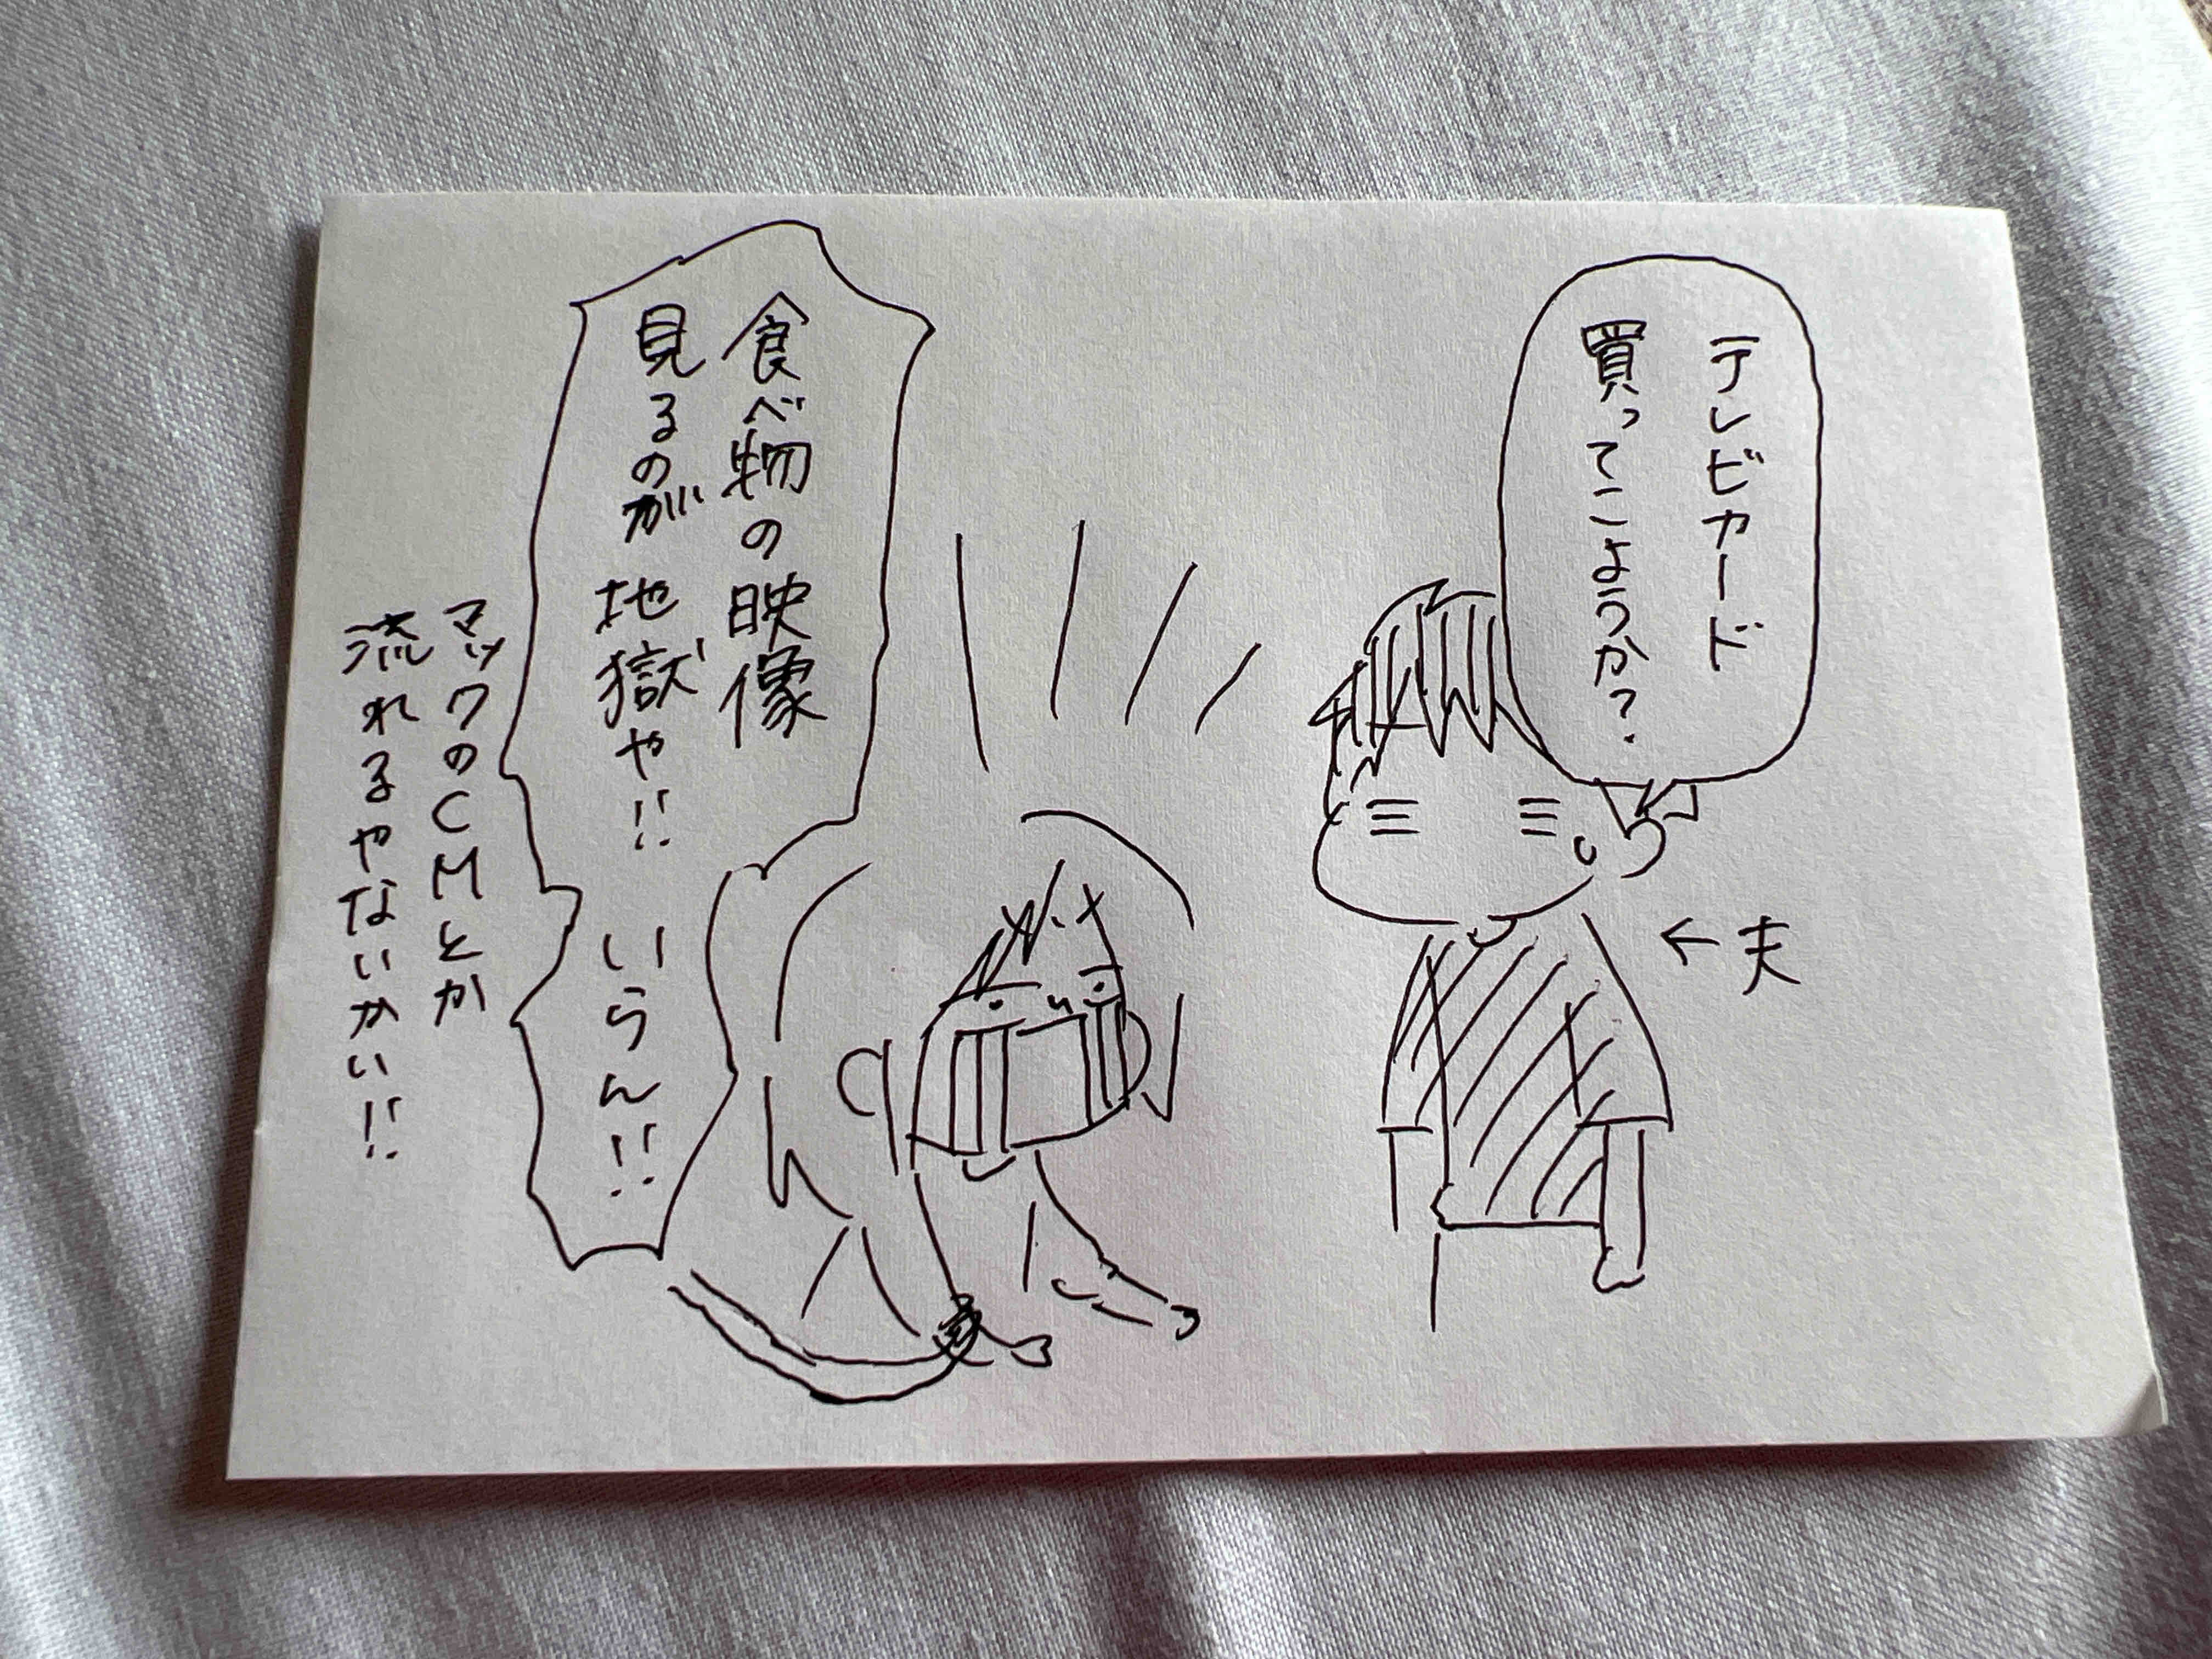 テレビカード
買ってこようか?
←夫
食べ物の映像
見るのが地獄や!! いらん!!
マックのCMとか
流れるやないかい!!